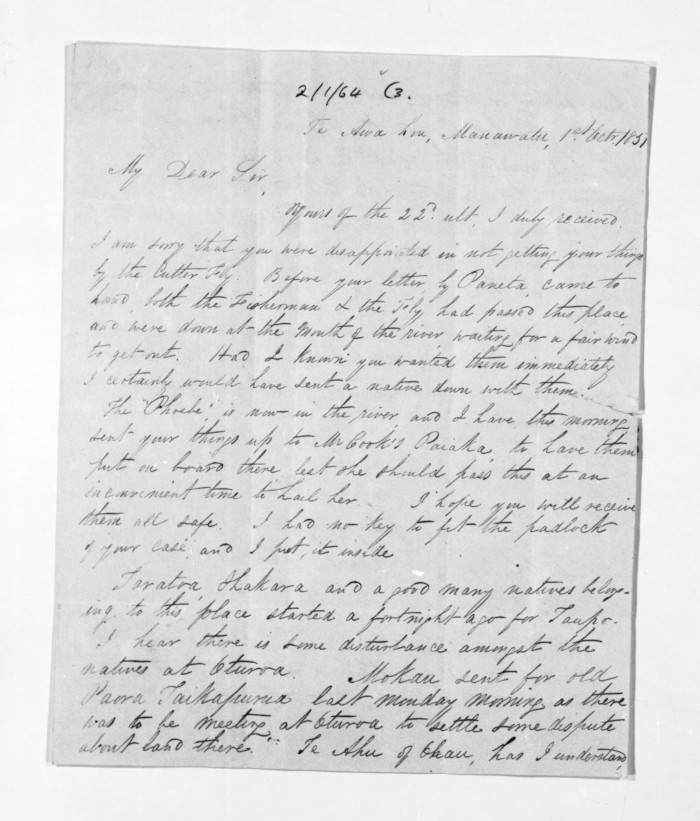 2/1/64 C3.
Te Awa hou, Manawatu, 1st Octr. 1851
My Dear Sir,
Yours of the 22d. ult. I duly received.
I am sorry that you were disappointed in not getting your things
by the Cutter Fly. Before your letter, by Paneta, came to
hand, both the Fisherman & the Fly had passed this place
and were down at the mouth of the river waiting for a fair wind
to get out. Had I known you wanted them immediately
I certainly would have sent a native down with them.
The "Phoebe" is now in the river, and I have, this morning,
sent your things up to Mr Cook's Paiaka, to have them
put on board there lest she should pass this at an
inconvenient time to hail her. I hope you will receive
them all safe. I had no key to fit the padlock
of your case, and I put it inside
Taratoa, Ihakara and a good many natives belong-
ing to this place started a fortnight ago for Taupo.
I hear there is some disturbance amongst the
natives at Oturoa. Mokau sent for old
Paora Taikapurua last Monday morning as there
was to be meeting at Oturoa to settle some dispute
about land there. Te Ahu of Ohau, has I understand,